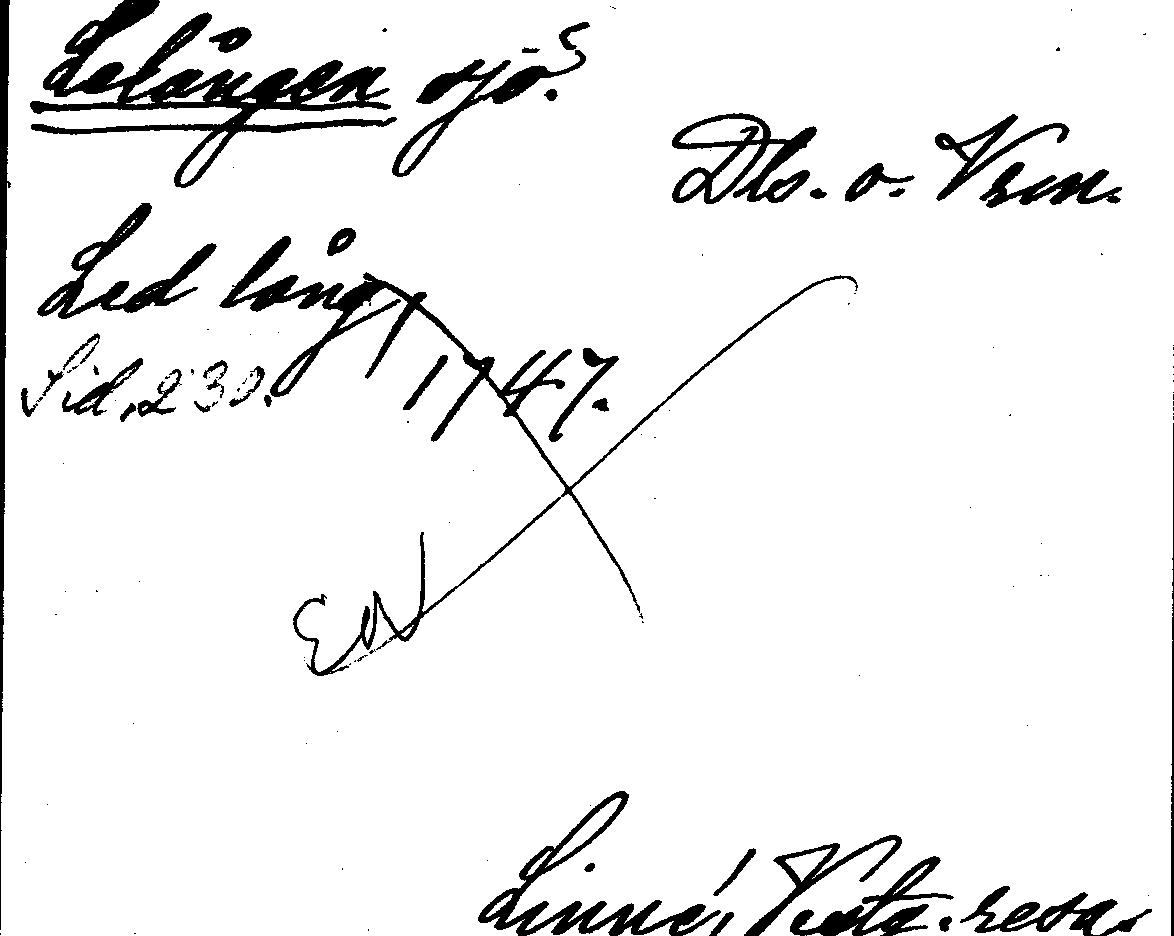 Lelången sjö.
Dls. o. Vrm.
Led lång,
Sid. 230. 1747.
Linné, Västg. resa.